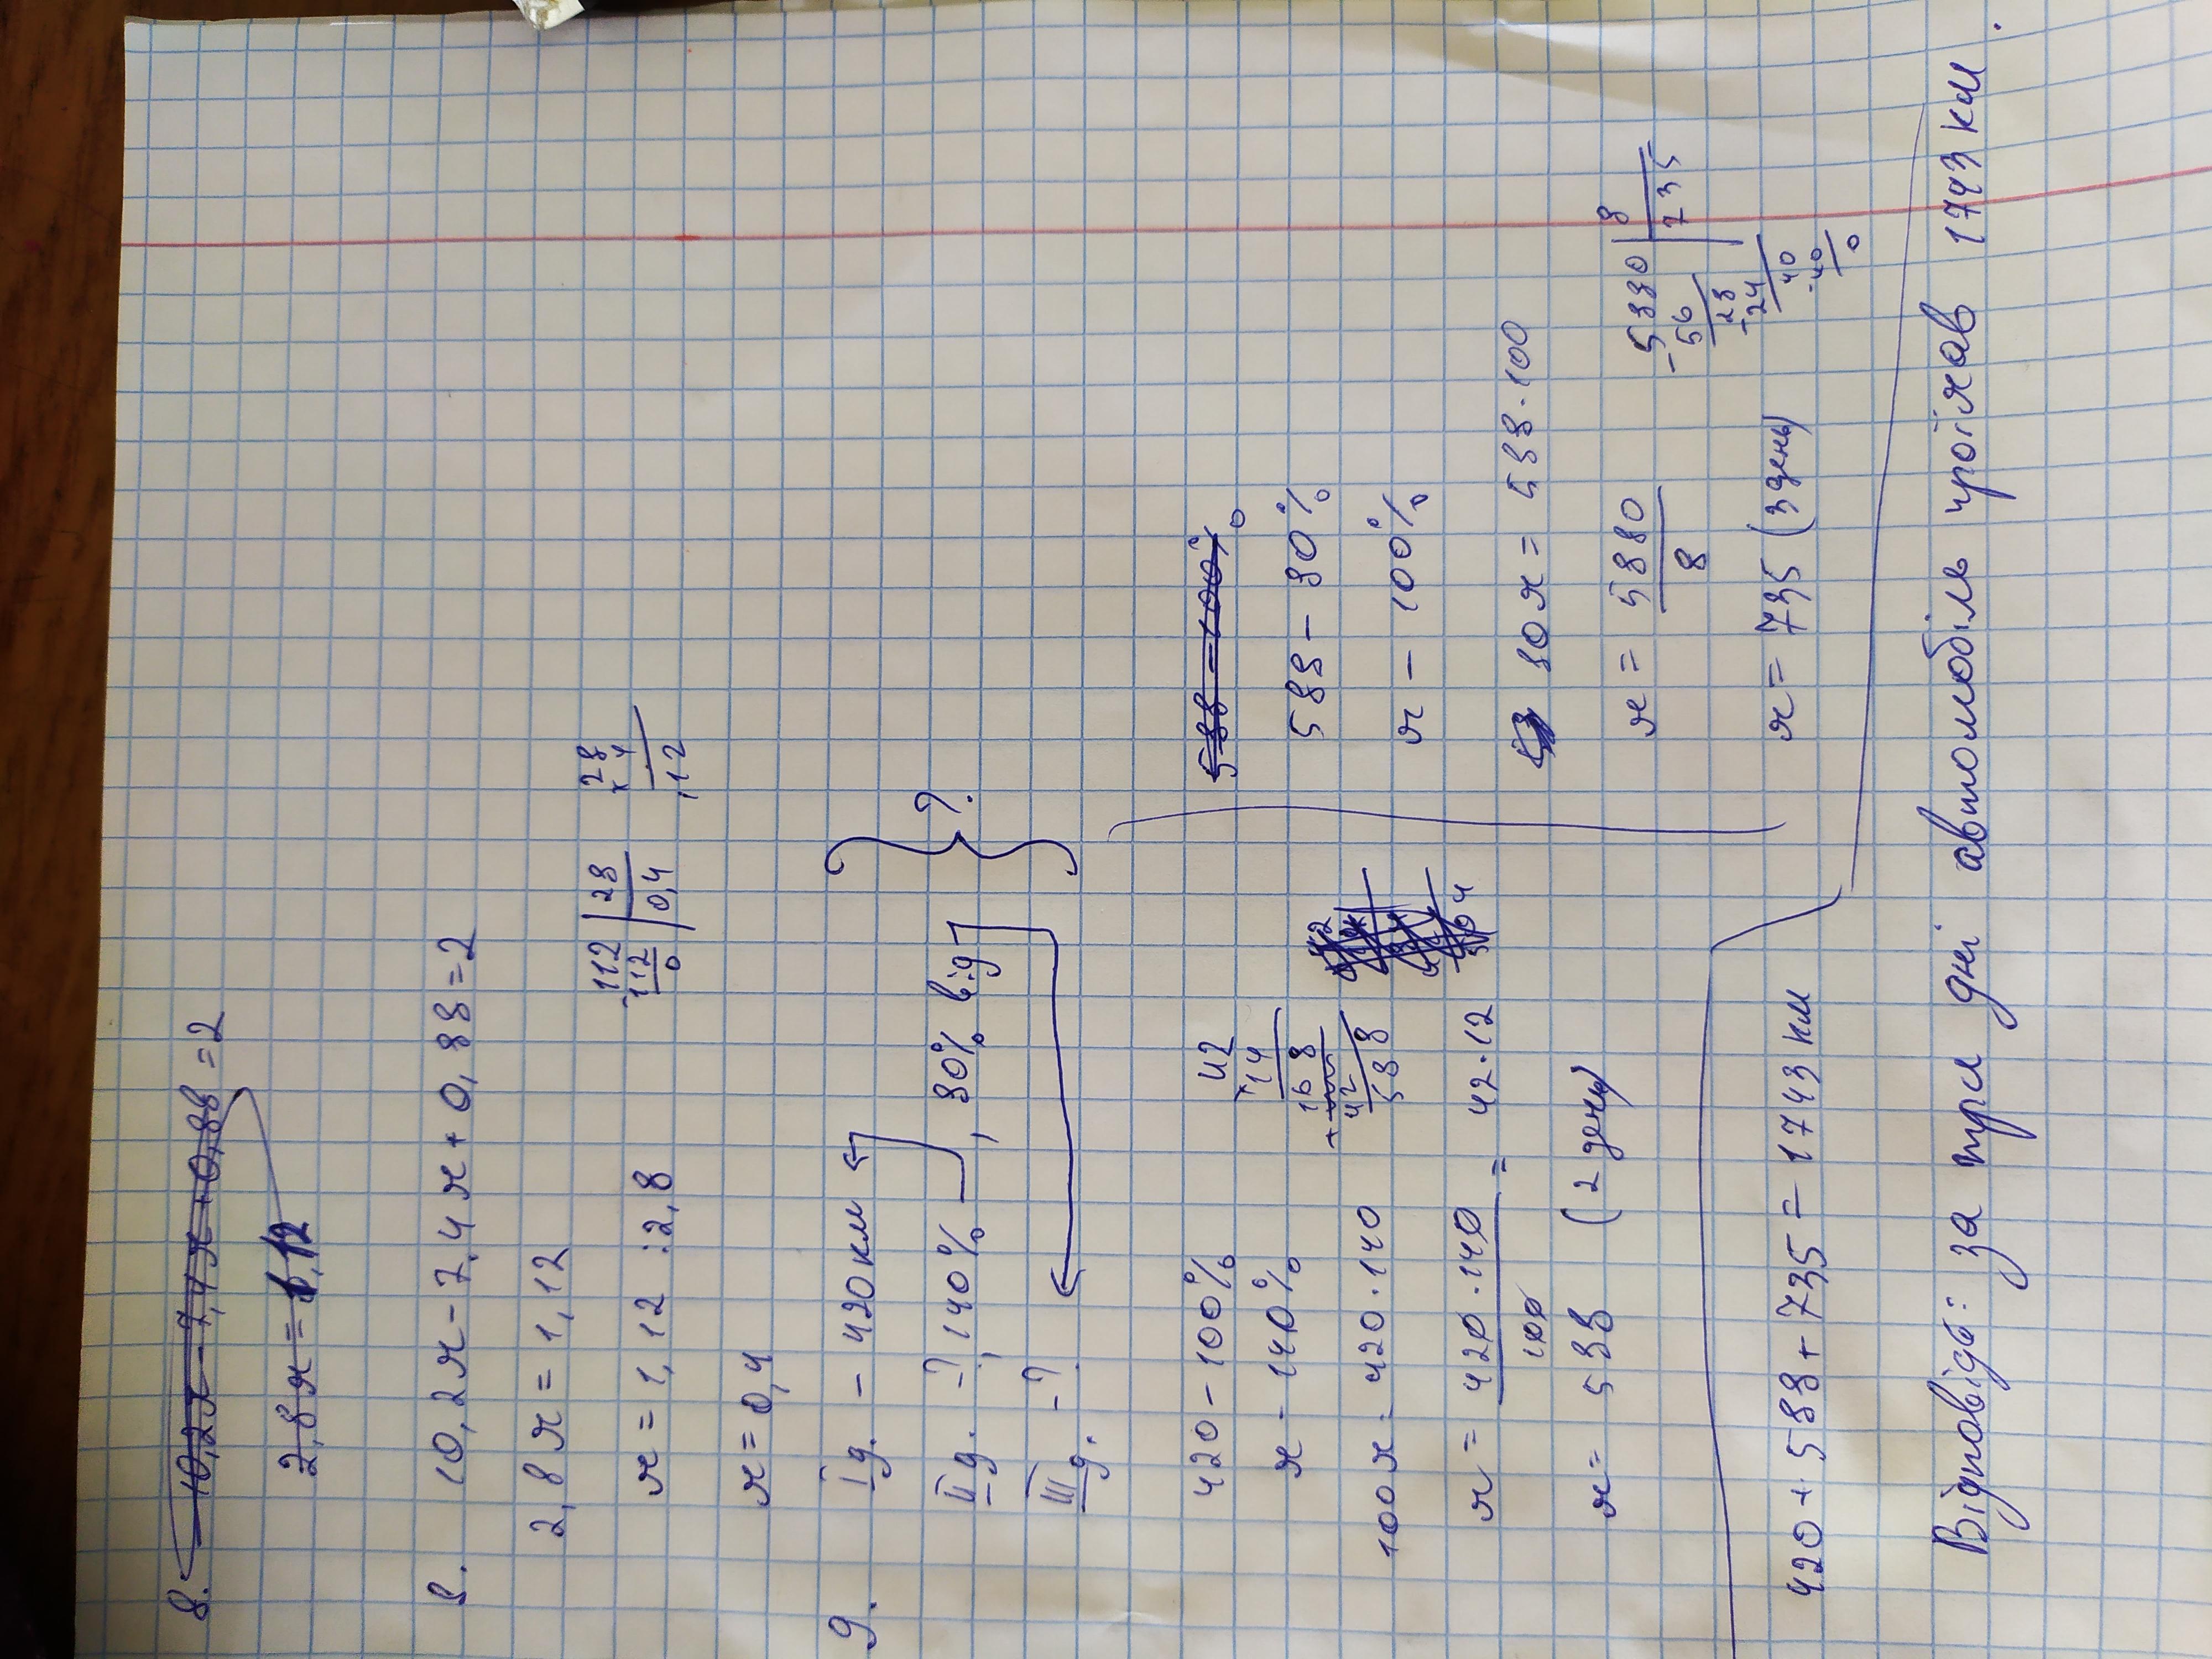 8. 10,2x - 7,4x + 0,88 = 2
2,8x = 1,12
8. 10,2x - 7,4x + 0,88 = 2
2,8x = 1,12
x = 1,12 : 2,8
-112 | 28
112 | 0,4
0
28
x 4
112
x = 0,4
9. I д. - 420 км
II д. - ?, 140%, 80% від
III д. - ?
?
420 - 100%
x - 140%
100x = 420 · 140
x = 420 · 140 / 100 = 42 · 12
x = 588 (2 день)
42
x 14
168
+
42
588
504
588 - 100%
588 - 80%
x - 100%
80x = 588 · 100
x = 5880 / 8
x = 735 (3 день)
-5880 | 8
56 | 735
28
-24
40
-40
0
420 + 588 + 735 = 1743 км
Відповідь: за три дні автомобіль проїхав 1743 км.